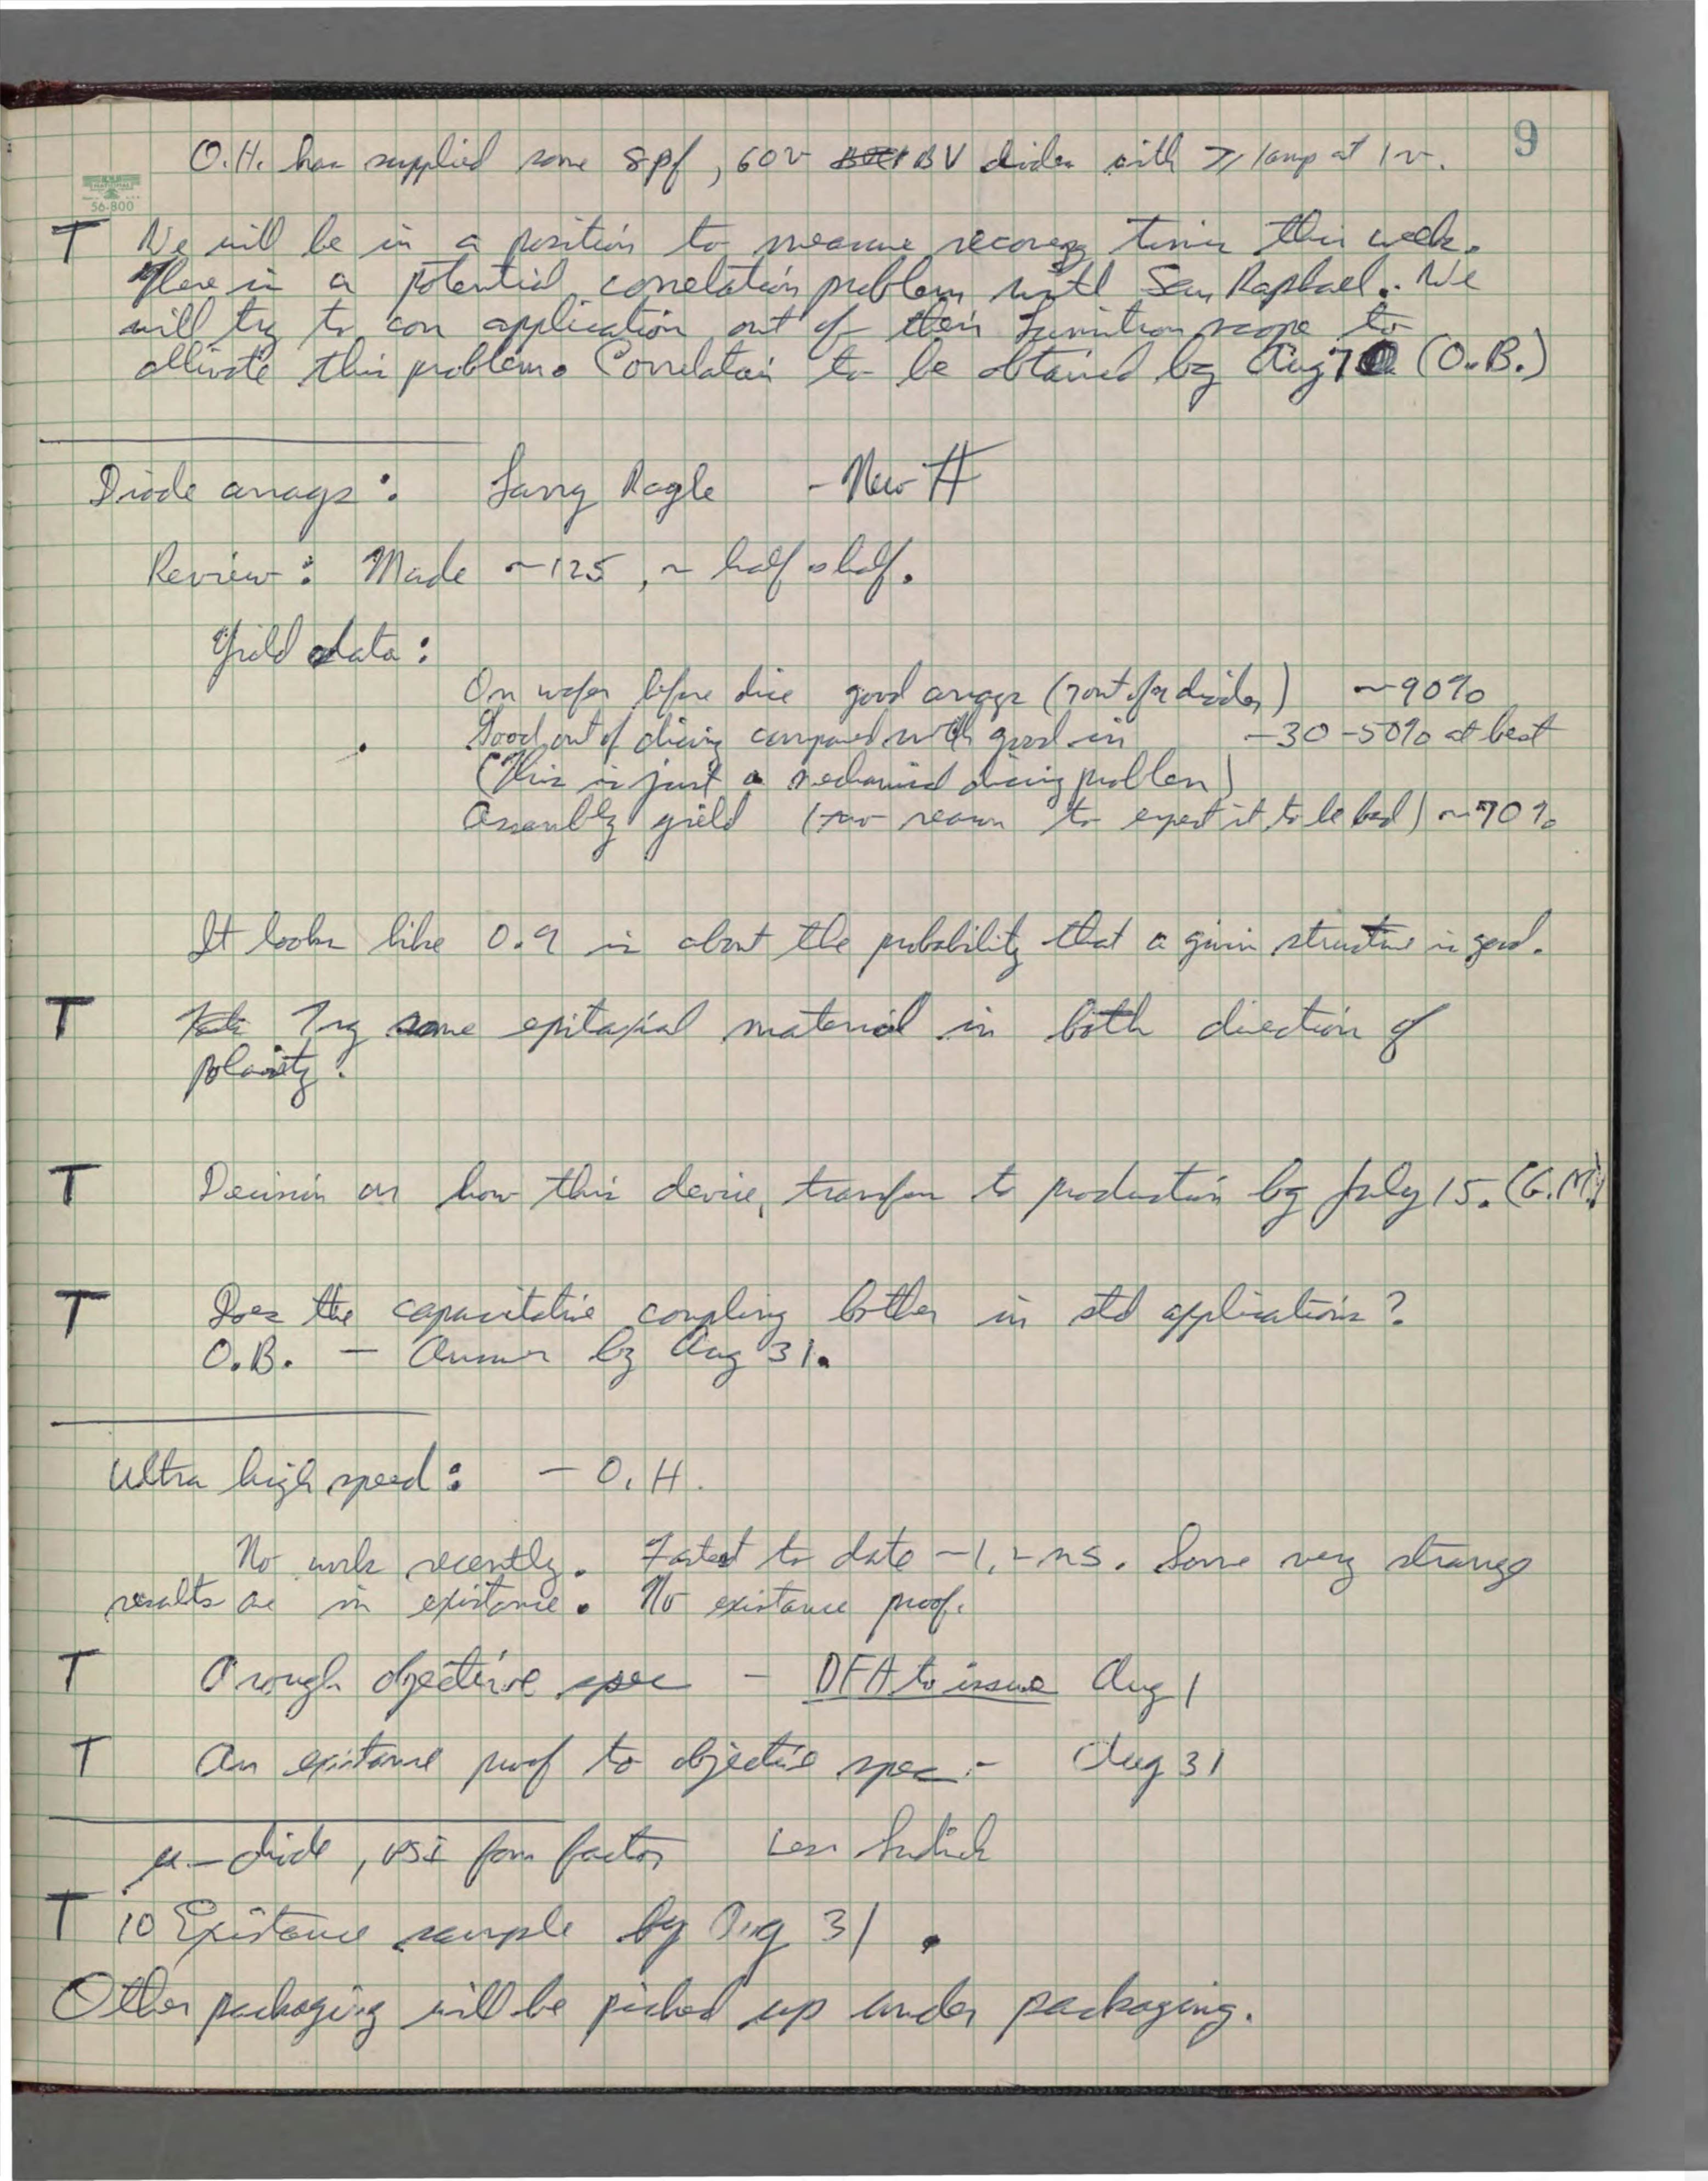 9
O.H. has supplied some 8pf, 60v BV diodes with ≥ 1amp at 1v.
NATIONAL
56-800
T We will be in a position to measure recovery times this week.
There is a potential correlation problem with San Raphael. We
will try to con application out of their scope to
alliviate this problem. Correlation to be obtained by Aug (O.B.)
Diode arrays: Larry Ragle - New #
Review: Made ~125, ~ half & half.
Yield data:
On wafer before dice good arrays ( out of diodes) ~90%
Good out of dicing compared with good in -30-50% at best
(This is just a mechanical dicing problem)
Assembly yield (no reason to expect it to be bad) ~90%
It looks like 0.9 is about the probability that a given structure is good.
T Try some epitaxial material in both direction of
polarity.
T Decision on how this device, transfer to production by July 15. (G.M.)
T Does the capacitative coupling bother in std applications?
O.B. — Answer by Aug 31.
Ultra high speed: - O.H.
No work recently. Fastest to date -1.2 ns. Some very strange
results are in existance. No existance proof.
T A rough objective spec - DFA to issue Aug 1
T An existance proof to objective spec - Aug 31
μ-diode, form factor Les
T 10 Existance sample by Aug 31.
Other packaging will be picked up under packaging.